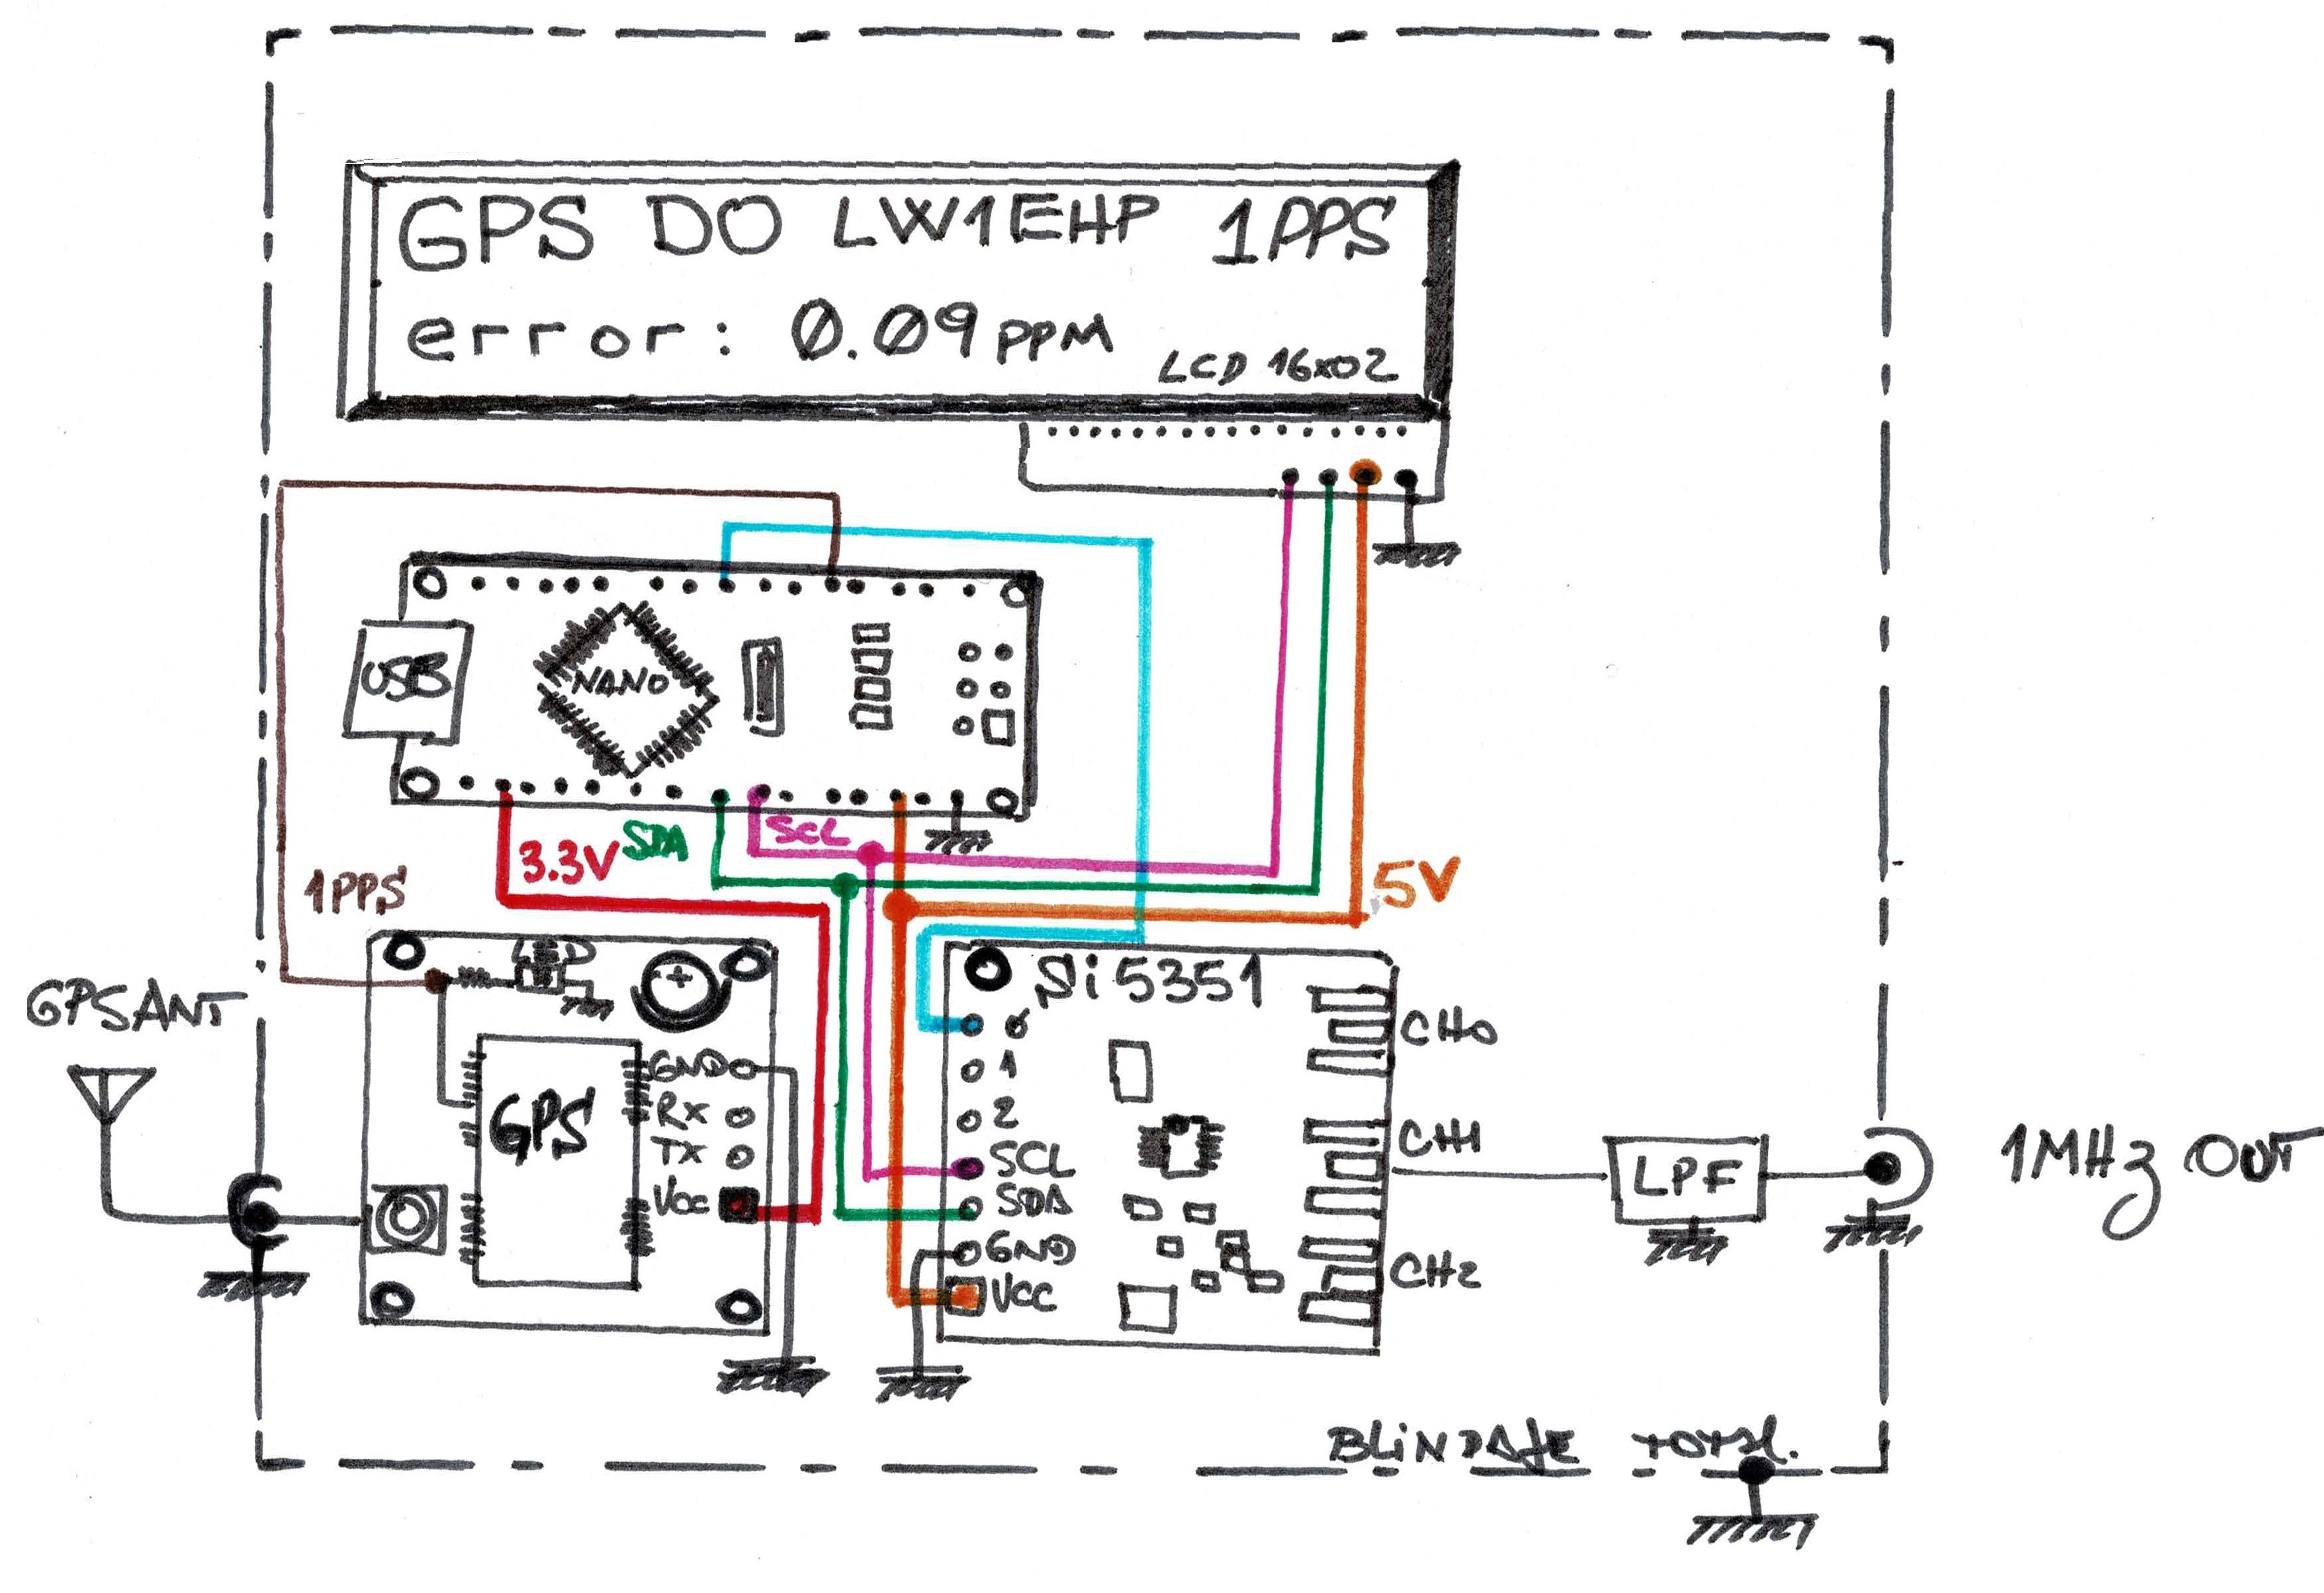 GPS DO LW1EHP 1PPS
error: 0.09 PPM
LCD 16x02
USB
NANO
3.3V
SDA
SCL
5V
1PPS
GPS ANT
LED
GPS
GND
Rx
TX
Vcc
Si5351
0
1
2
SCL
SDA
GND
VCC
CH0
CH1
CH2
LPF
1MHz OUT
BLiNDAJE TOTAL.